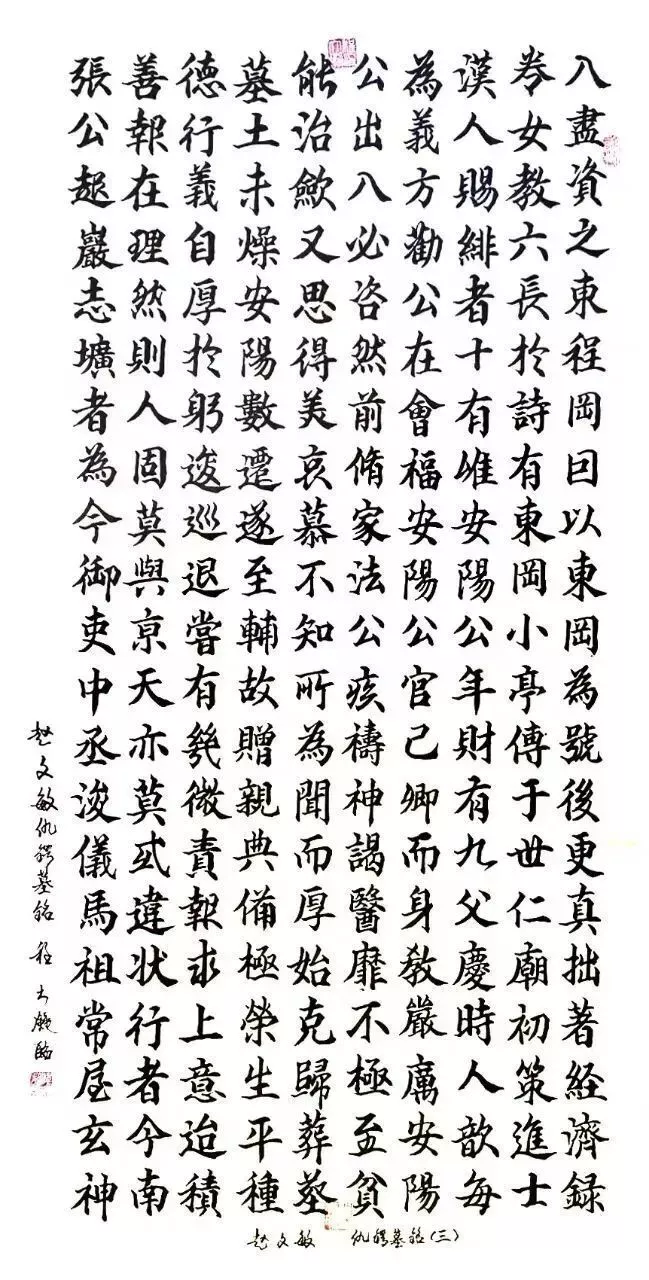 八盡資之東程岡曰以東岡為號後更真拙著経濟録
卷女教六長於詩有東岡小亭傳于世仁廟初策進士
漢人賜緋者十有惟安陽公年財有九父慶時人歆每
為義方勸公在會福安陽公官已卿而身教嚴厲安陽
公出入必咨然前脩家法公疾禱神謁醫靡不極至貧
能治歛又思得美哀慕不知所為聞而厚始克歸葬塟
墓土未燥安陽數遷遂至輔故贈親典備極榮生平種
德行義自厚於躬逡巡退嘗有幾微責報求上意迨積
善報在理然則人固莫與京天亦莫或違狀行者今南
張公起巖志壙者為今御史中丞浚儀馬祖常屋玄神
趙文敏仇锷墓銘 程大 臨
趙文敏 仇锷墓銘(三)